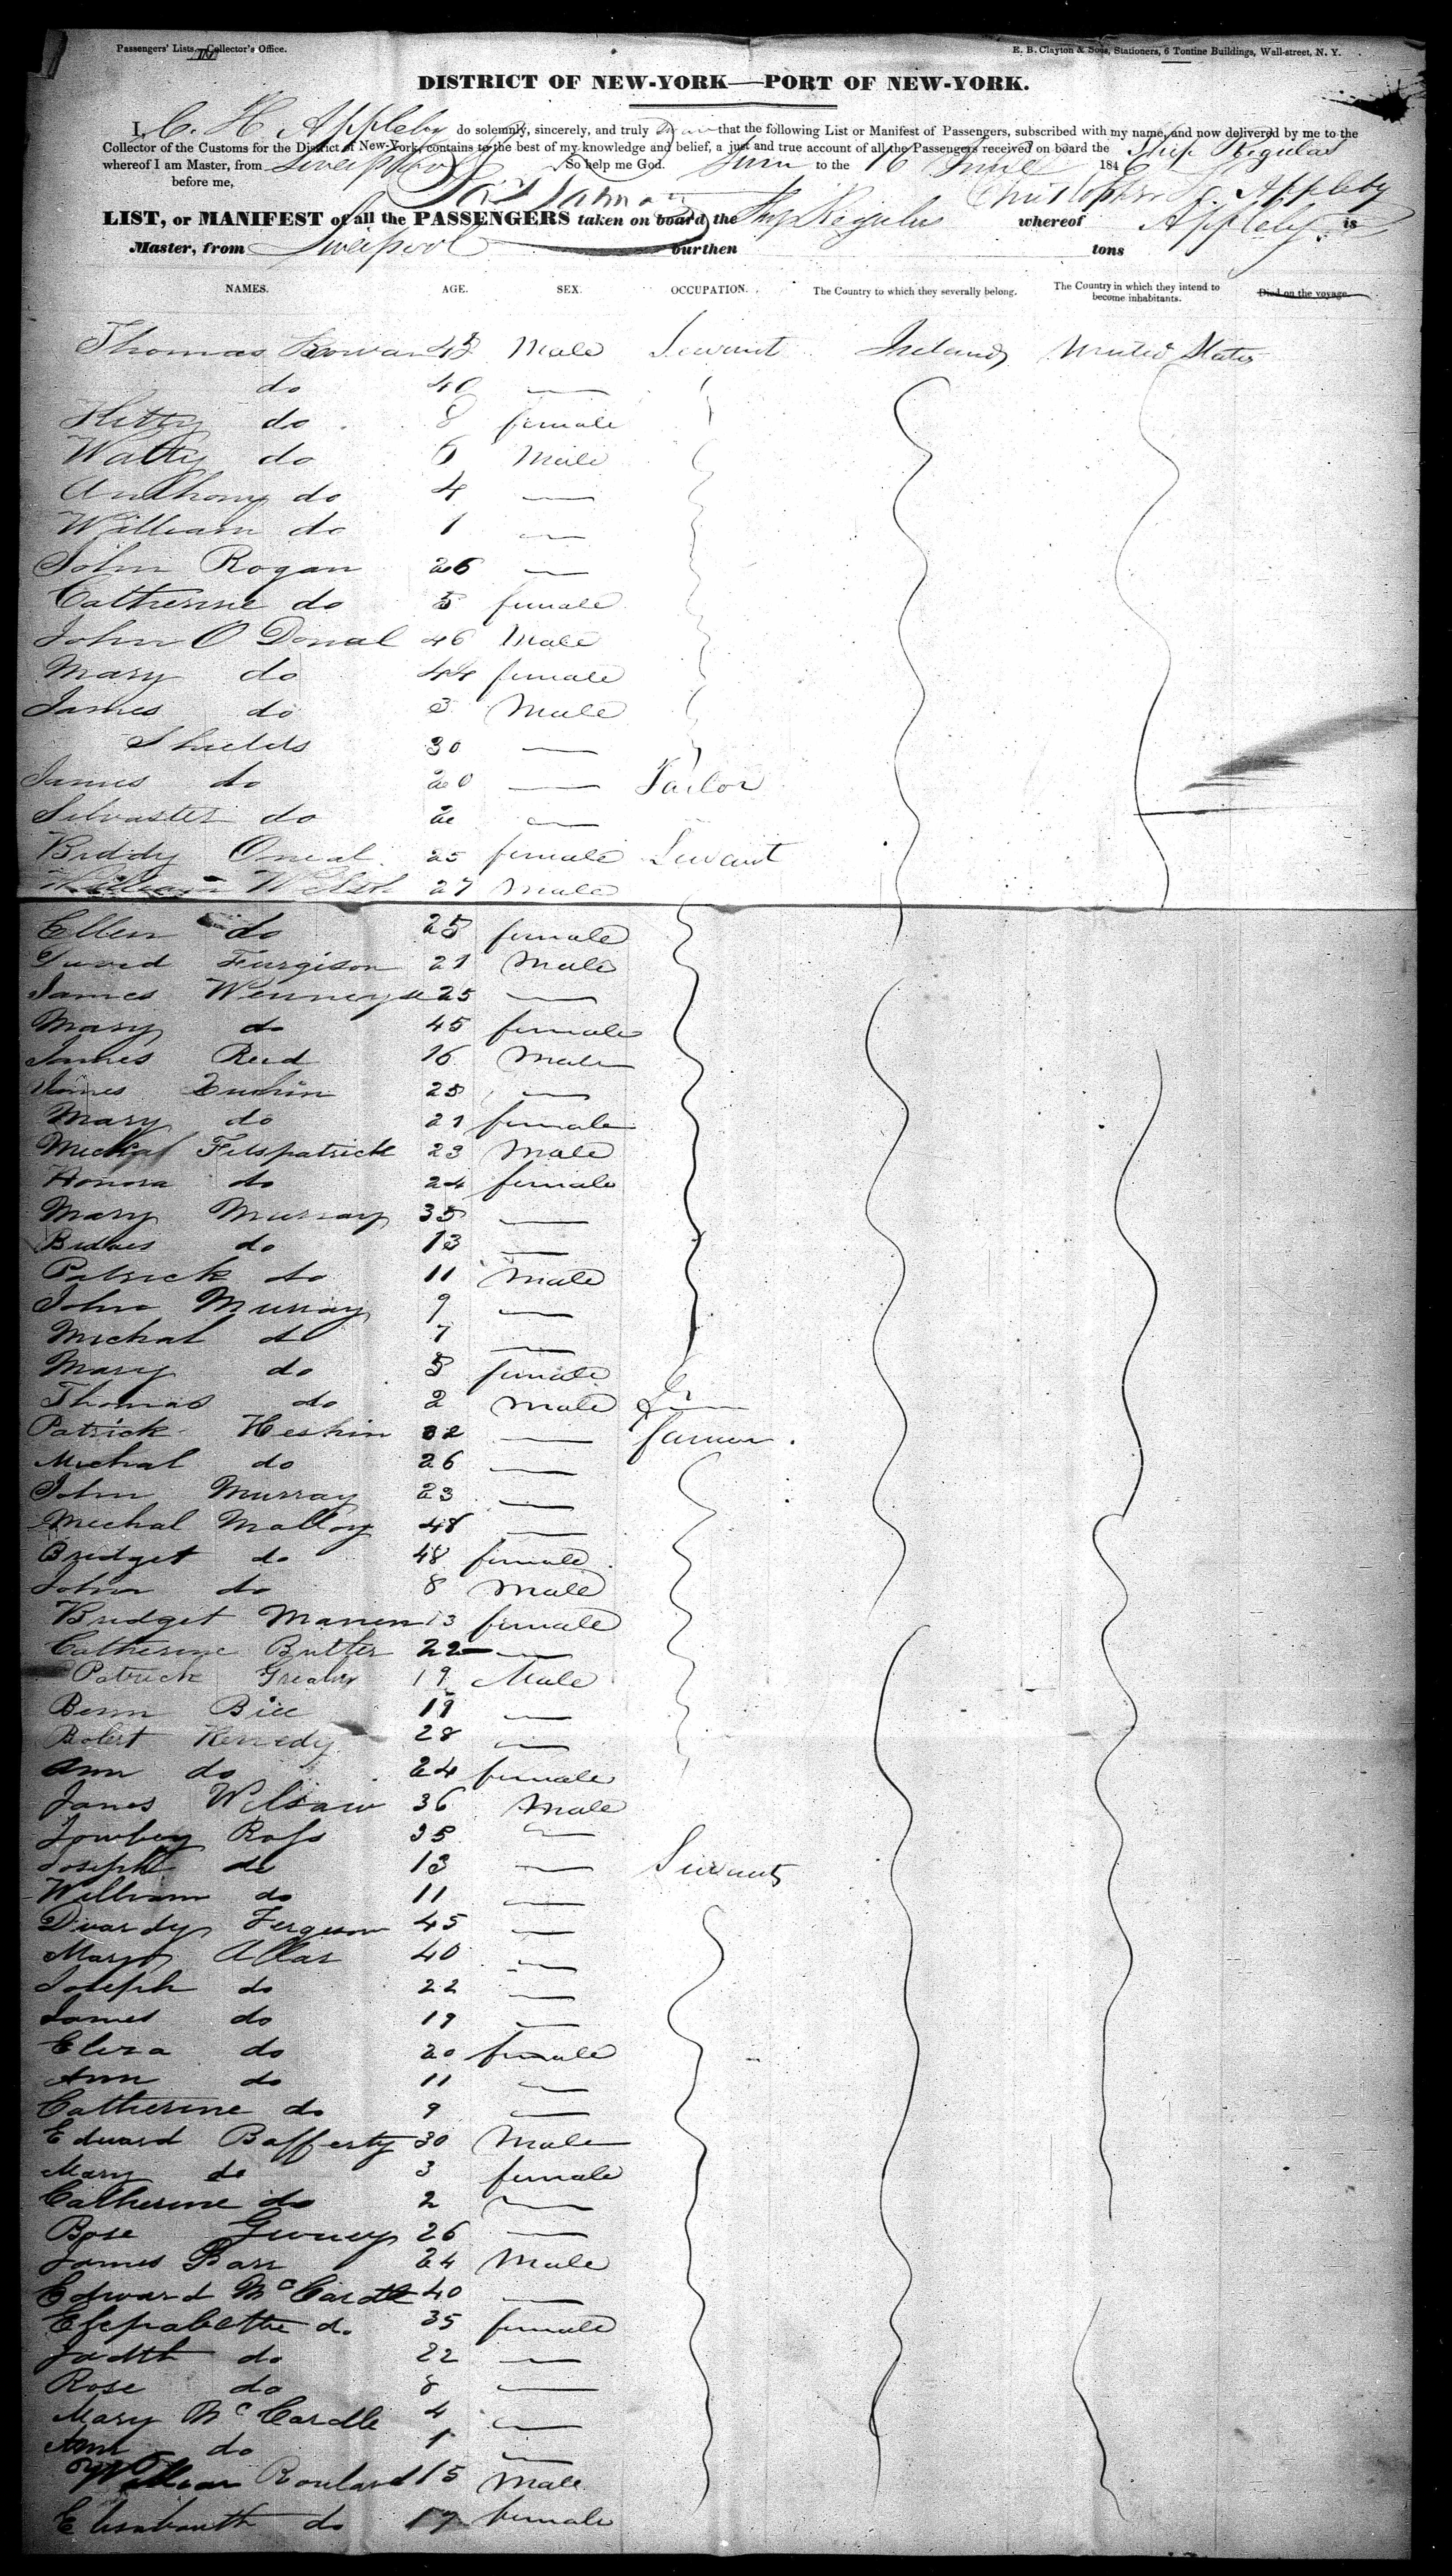 Passengers' Lists—Collector's Office.
E. B. Clayton & Sons, Stationers, 6 Tontine Buildings, Wall-street, N. Y.
DISTRICT OF NEW-YORK—PORT OF NEW-YORK.
I, C. H. Appleby do solemnly, sincerely, and truly swear that the following List or Manifest of Passengers, subscribed with my name, and now delivered by me to the
Collector of the Customs for the District of New-York, contains to the best of my knowledge and belief, a just and true account of all the Passengers received on board the Ship Regulus
whereof I am Master, from Liverpool So help me God. Sworn to the 16 June 184
before me, Christopher H. Appleby
LIST, or MANIFEST of all the PASSENGERS taken on board the Ship Regulus whereof Appleby is
Master, from Liverpool burthen tons
NAMES. AGE. SEX. OCCUPATION. The Country to which they severally belong. The Country in which they intend to become inhabitants. Died on the voyage.
Thomas Rowan 45 Male Servant Ireland United States
do 40 —
Kitty do 8 female
Watty do 6 Male
Anthony do 4 —
William do 1 —
John Rogan 26 —
Catherine do 5 female
John O Donal 46 Male
Mary do 44 female
James do 3 Male
Shields 30 —
James do 20 — Tailor
Silvaster do 2 —
Biddy Oneal 25 female Servant
William Welsh 27 Male
Ellen do 25 female
David Furgison 21 Male
James 25 —
Mary do 45 female
James Reed 16 Male
James 25 —
Mary do 21 female
Michal Fitspatrick 23 Male
Honora do 24 female
Mary Murray 35 —
do 13 —
Patrick do 11 Male
John Murray 9 —
Michal do 7 —
Mary do 5 female
Thomas do 2 Male
Patrick Heshin 32 — farmer.
Michal do 26 —
John Murray 23 —
Michal Malloy 48 —
Bridget do 48 female
John do 8 Male
Bridget Manen 13 female
Catherine Butler 22 —
Patrick 19 Male
Bill 19 —
Robert Kennedy 28 —
Ann do 24 female
James Wilsaw 36 Male
Rofs 35 —
Joseph do 13 — Servants
William do 11 —
Ferguson 45 —
Mary Allar 40 —
Joseph do 22 —
James do 19 —
Eliza do 20 female
Ann do 11 —
Catherine do 9 —
Edward Bafferty 30 Male
Mary do 3 female
Catherine do 2 —
Rose 26 —
James Barr 24 Male
Edward McCardle 40 —
do 35 female
Judith do 22 —
Rose do 8 —
Mary McCardle 4 —
Ann do 1 —
William Rouland 15 Male
do 17 female